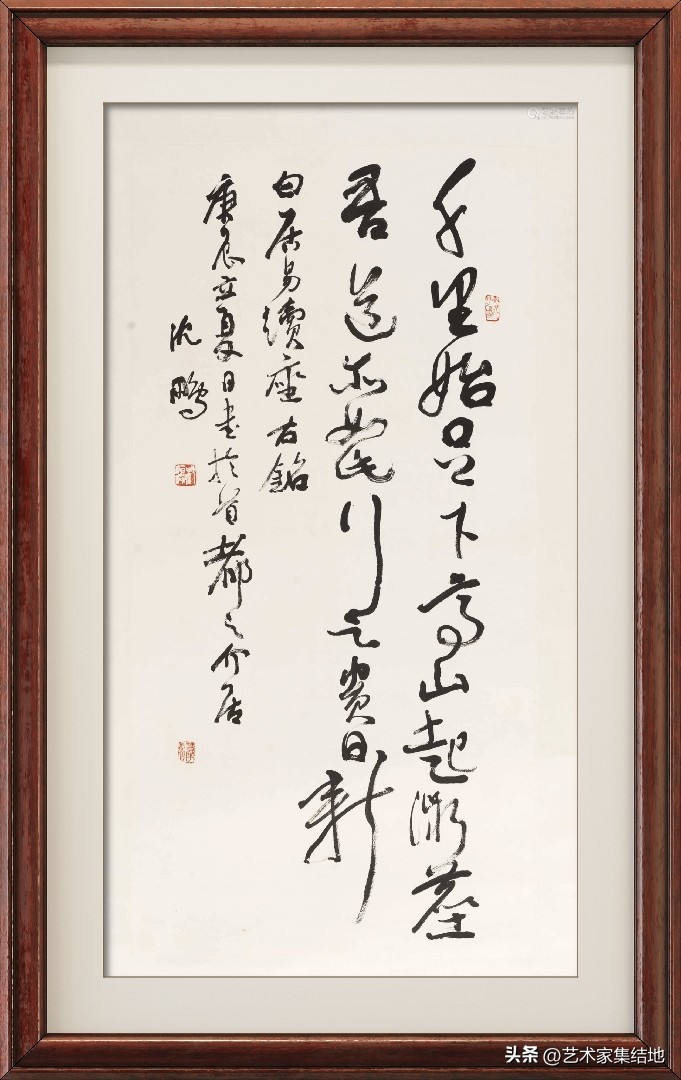 千里始足下高山起微塵
吾道亦如此行之貴日新
白居易續座右銘
庚辰立夏日書於首都之介居
沈鵬
头条 @艺术家集结地